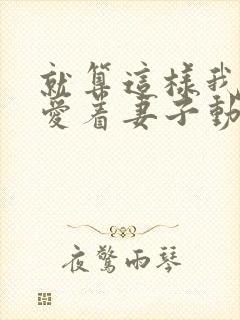 就算這樣我
愛着妻子動
夜驚雨琴